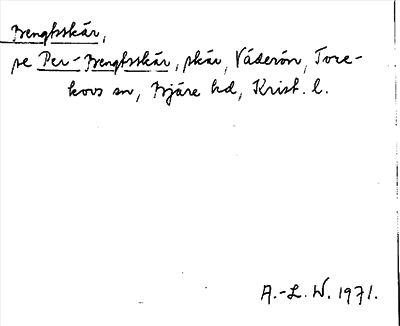 Bengtsskär,
se Per-Bengtsskär, skär, Väderön, Tore-
kovs sn, Bjäre hd, Krist. l.
A.-L. W. 1971.